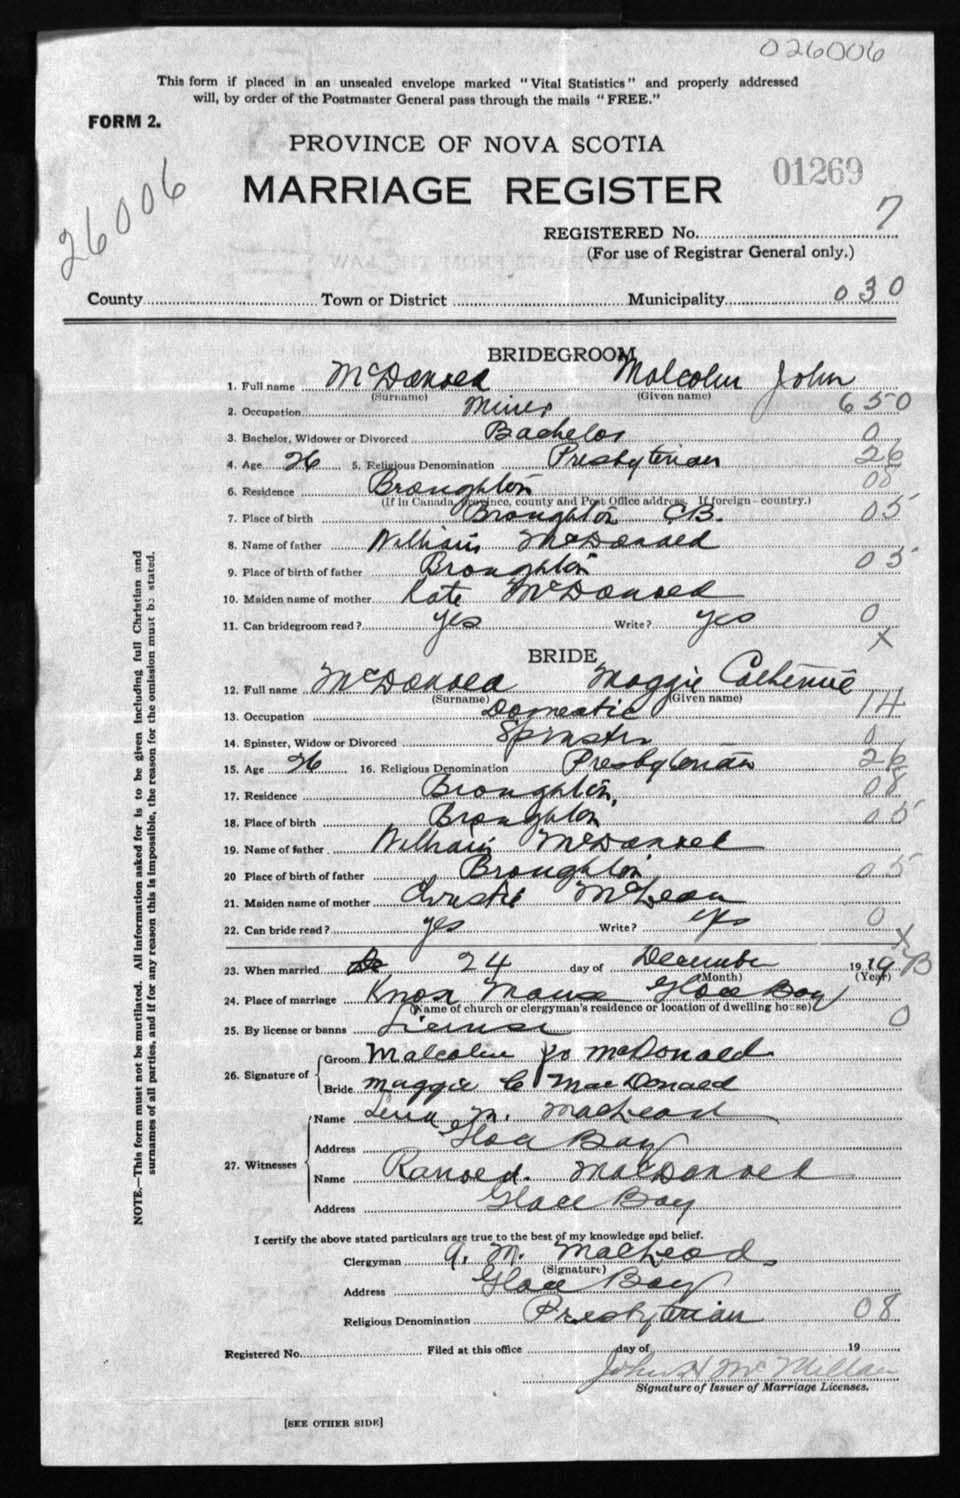 026006
This form if placed in an unsealed envelope marked "Vital Statistics" and properly addressed
will, by order of the Postmaster General pass through the mails "FREE."
FORM 2.
PROVINCE OF NOVA SCOTIA
01269
MARRIAGE REGISTER
26006
REGISTERED No. 7
(For use of Registrar General only.)
County Town or District Municipality 030
BRIDEGROOM
1. Full name McDonald Malcolm John
(Surname) (Given name)
2. Occupation Miner 650
3. Bachelor, Widower or Divorced Bachelor 0
4. Age 26 5. Religious Denomination Presbyterian 26
6. Residence Broughton 08
(If in Canada, province, county and Post Office address. If foreign-country.)
7. Place of birth Broughton CB. 05
8. Name of father William McDonald
9. Place of birth of father Broughton 05
10. Maiden name of mother Kate McDonald
11. Can bridegroom read? yes Write? yes 0
X
BRIDE
12. Full name McDonald Maggie Catherine
(Surname) (Given name)
13. Occupation Domestic 14
14. Spinster, Widow or Divorced Spinster 0
15. Age 26 16. Religious Denomination Presbyterian 26
17. Residence Broughton, 08
18. Place of birth Broughton 05
19. Name of father William McDonald
20 Place of birth of father Broughton 05
21. Maiden name of mother Christie McLean
22. Can bride read? yes Write? yes 0
X
23. When married De 24 day of December 1919 B
(Month) (Year)
24. Place of marriage Knox Manse Glace Bay
(Name of church or clergyman's residence or location of dwelling house)
25. By license or banns License 0
26. Signature of
Groom Malcolm Jo McDonald
Bride Maggie C MacDonald
27. Witnesses
Name Lena M. MacLeod
Address Glace Bay
Name Ranald MacDonald
Address Glace Bay
I certify the above stated particulars are true to the best of my knowledge and belief.
Clergyman A. M. MacLeod.
(Signature)
Address Glace Bay
Religious Denomination Presbyterian 08
Registered No. Filed at this office day of 19
John H McMillan
Signature of Issuer of Marriage Licenses.
[SEE OTHER SIDE]
NOTE.—This form must not be mutilated. All information asked for is to be given including full Christian and
surnames of all parties, and if for any reason this is impossible, the reason for the omission must be stated.